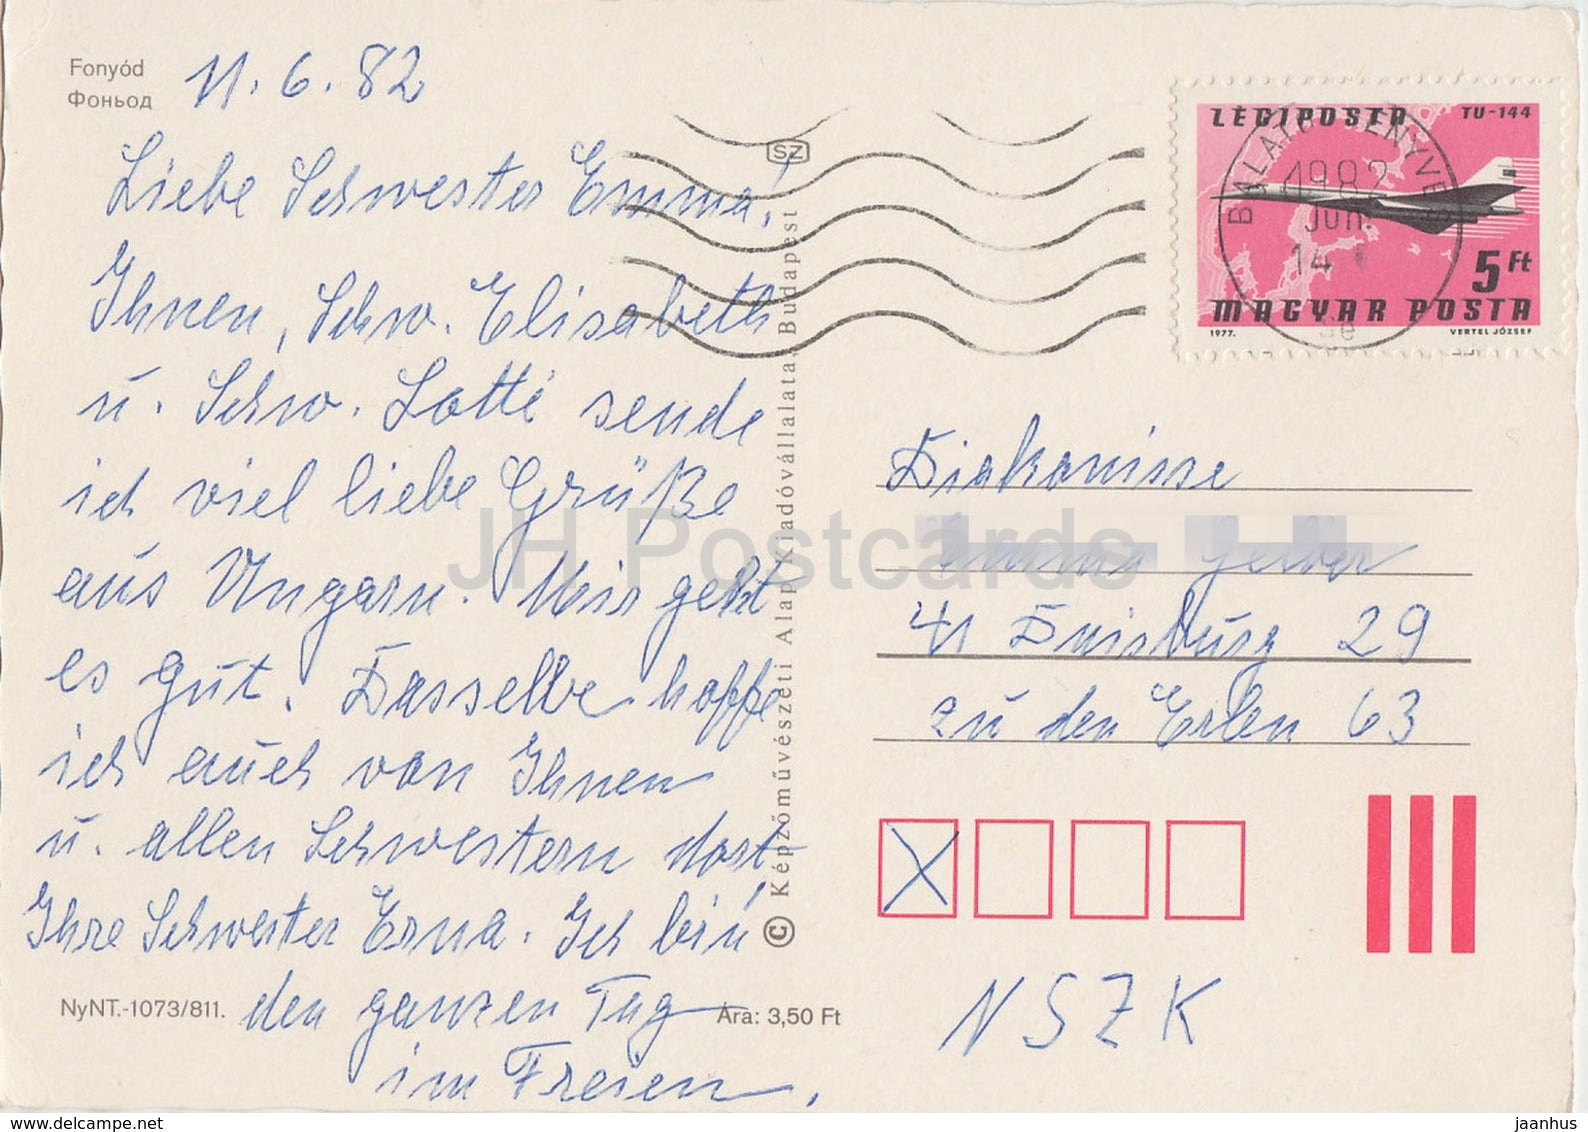 Fonyód
Фоньод
11.6.82
Liebe Schwester Emma!
Ihnen, Schw. Elisabeth
u. Schw. Lotte sende
ich viel liebe Grüße
aus Ungarn. Mir geht
es gut. Dasselbe hoffe
ich auch von Ihnen
u. allen Schwestern dort
Ihre Schwester Erna. Ich bin
den ganzen Tag
im Freien.
NyNT.-1073/811.
Ára: 3,50 Ft
SZ
© Képzőművészeti Alap Kiadóvállalata, Budapest
LÉGIPOSTA TU-144
5 Ft
MAGYAR POSTA
1977. VERTEL JÓZSEF
BALATONFENYVES
1982
JUN.
14
Diakonisse
41 Duisburg 29
zu den Erlen 63
NSZK
JH Postcards
www.delcampe.net
jaanhus